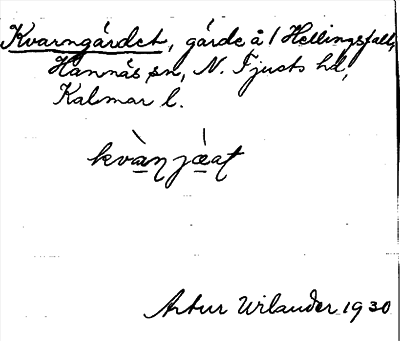 Kvarngärdet, gärde å 1 Hellingsfall,
Hannäs sn, N. Tjusts hd,
Kalmar l.
kvàn jæ̀at
Artur Wilander 1930